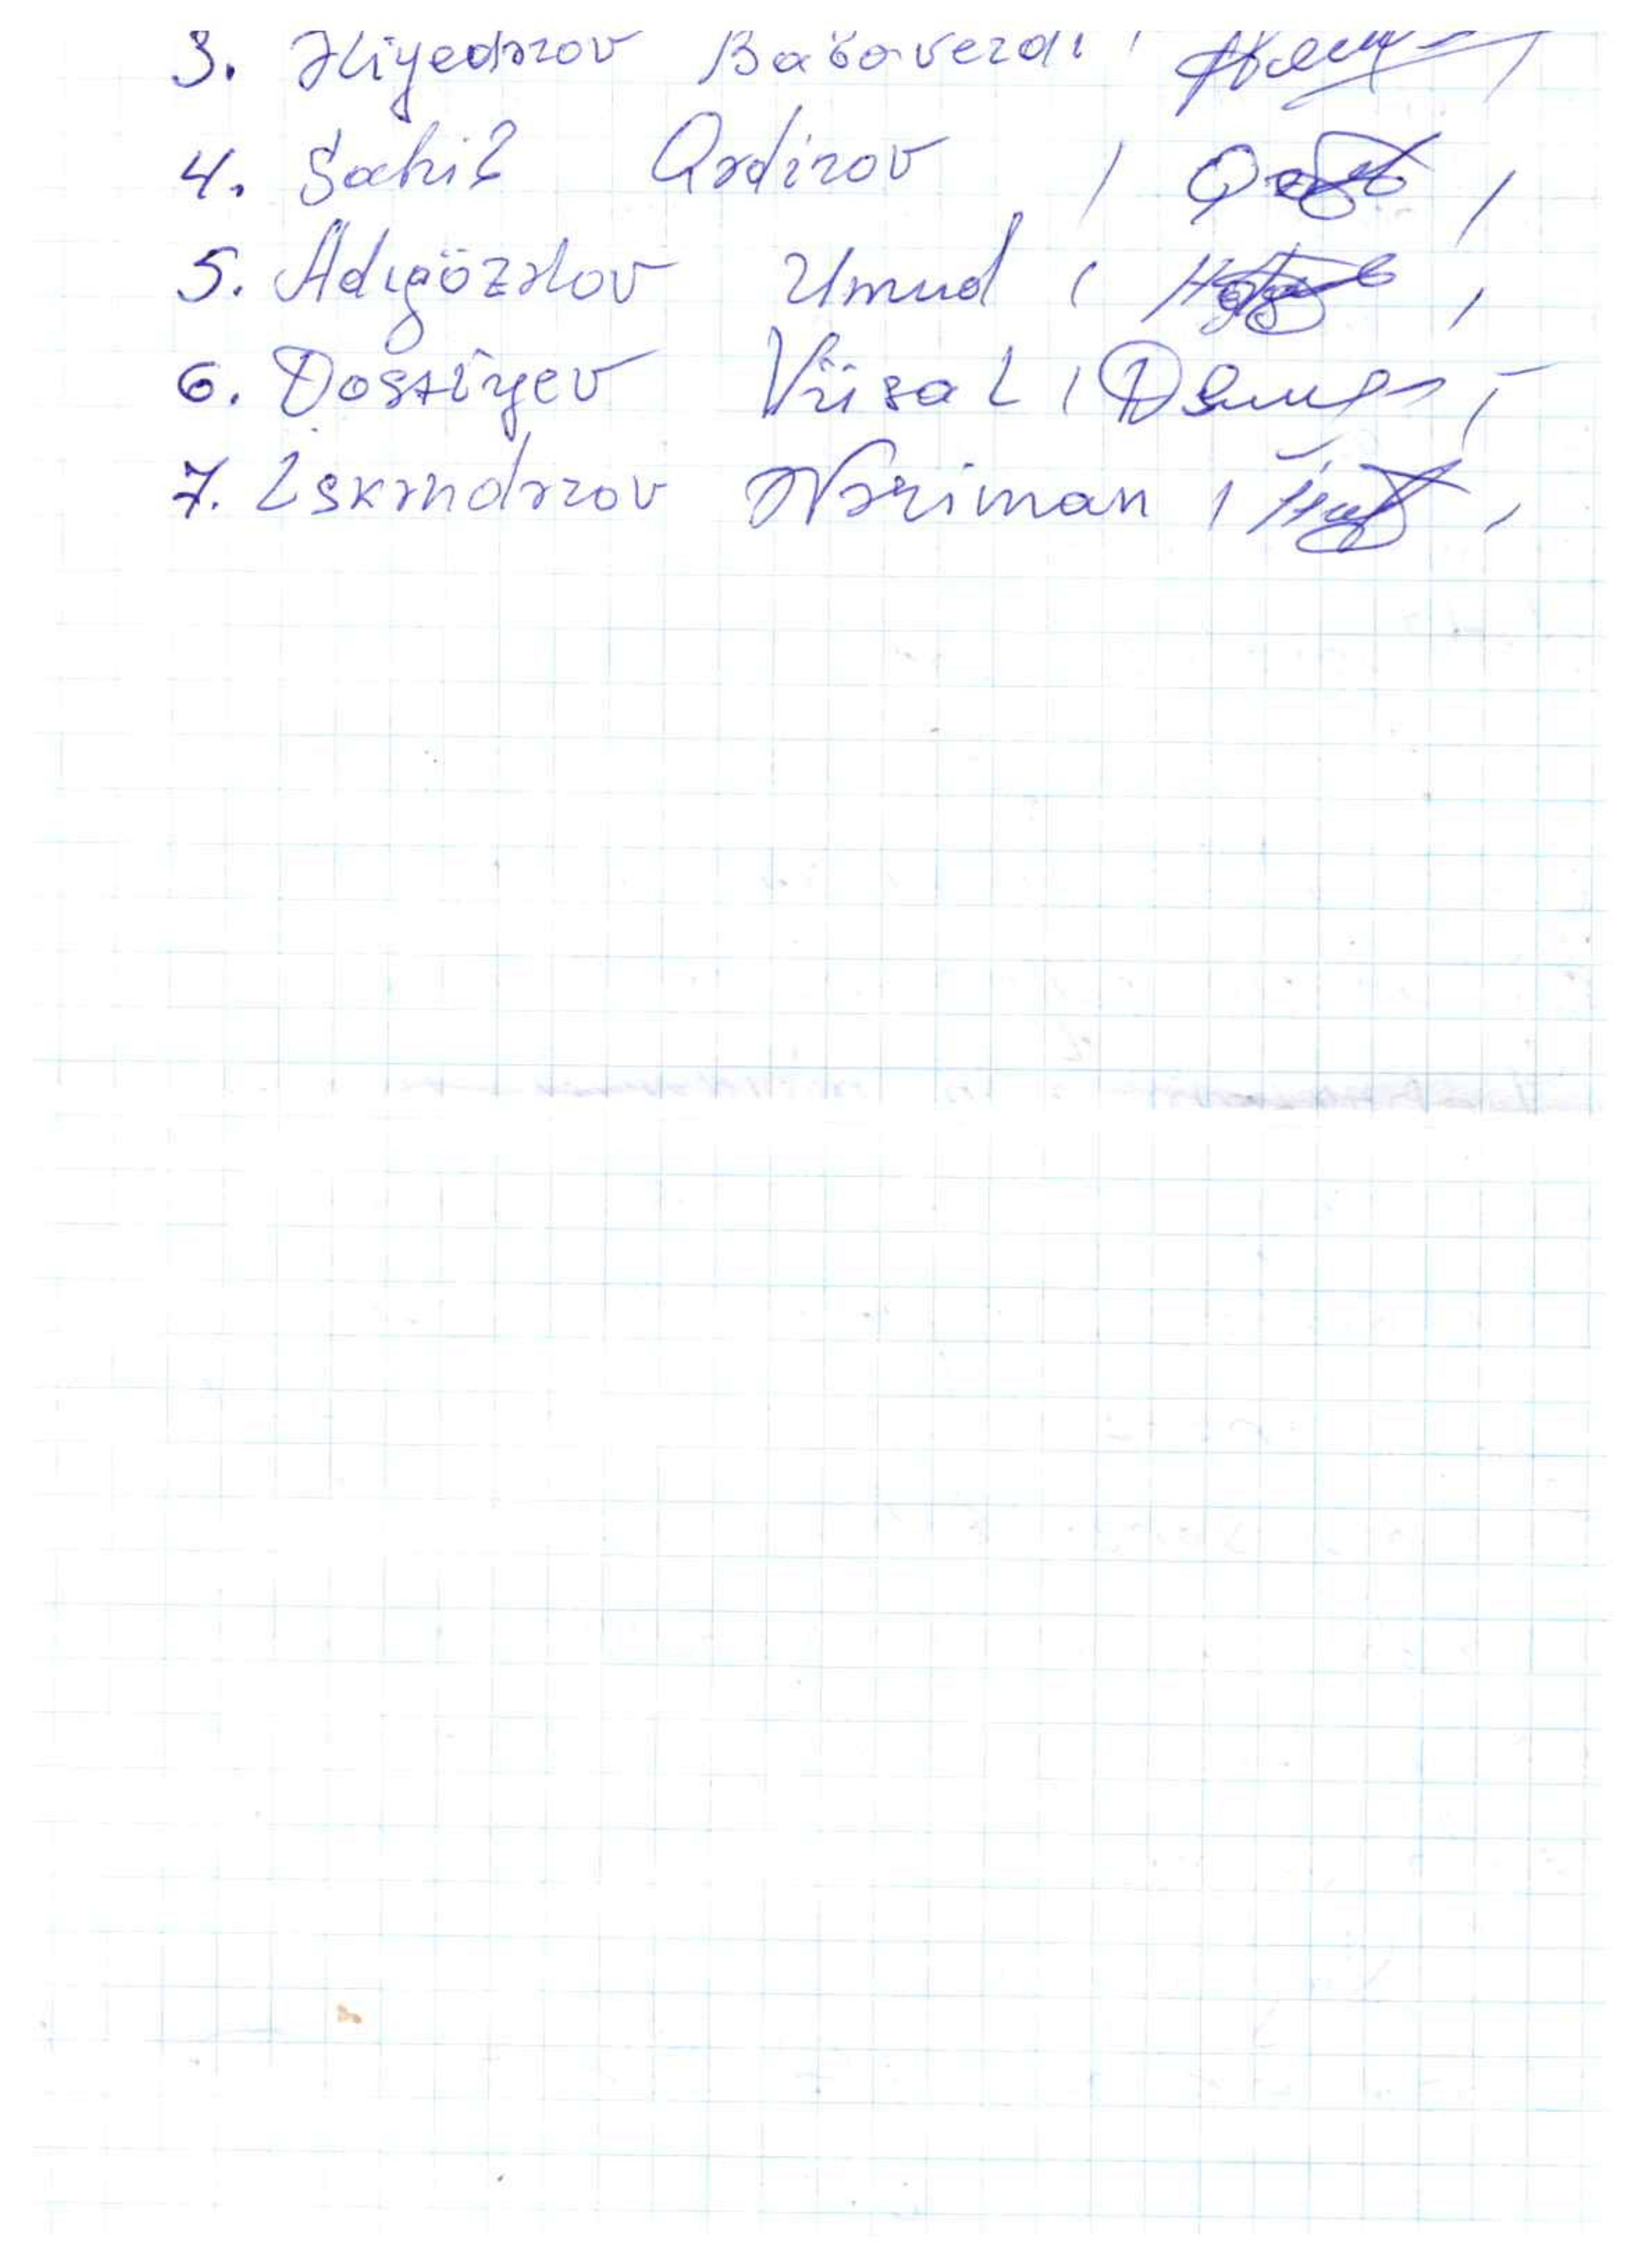 3. Əliyedərov Babaverdi / /
4. Sahil Qədirov / /
5. Adıgözəlov Umud / /
6. Dostiyev Vüsal / /
7. İskəndərov Nəriman / /